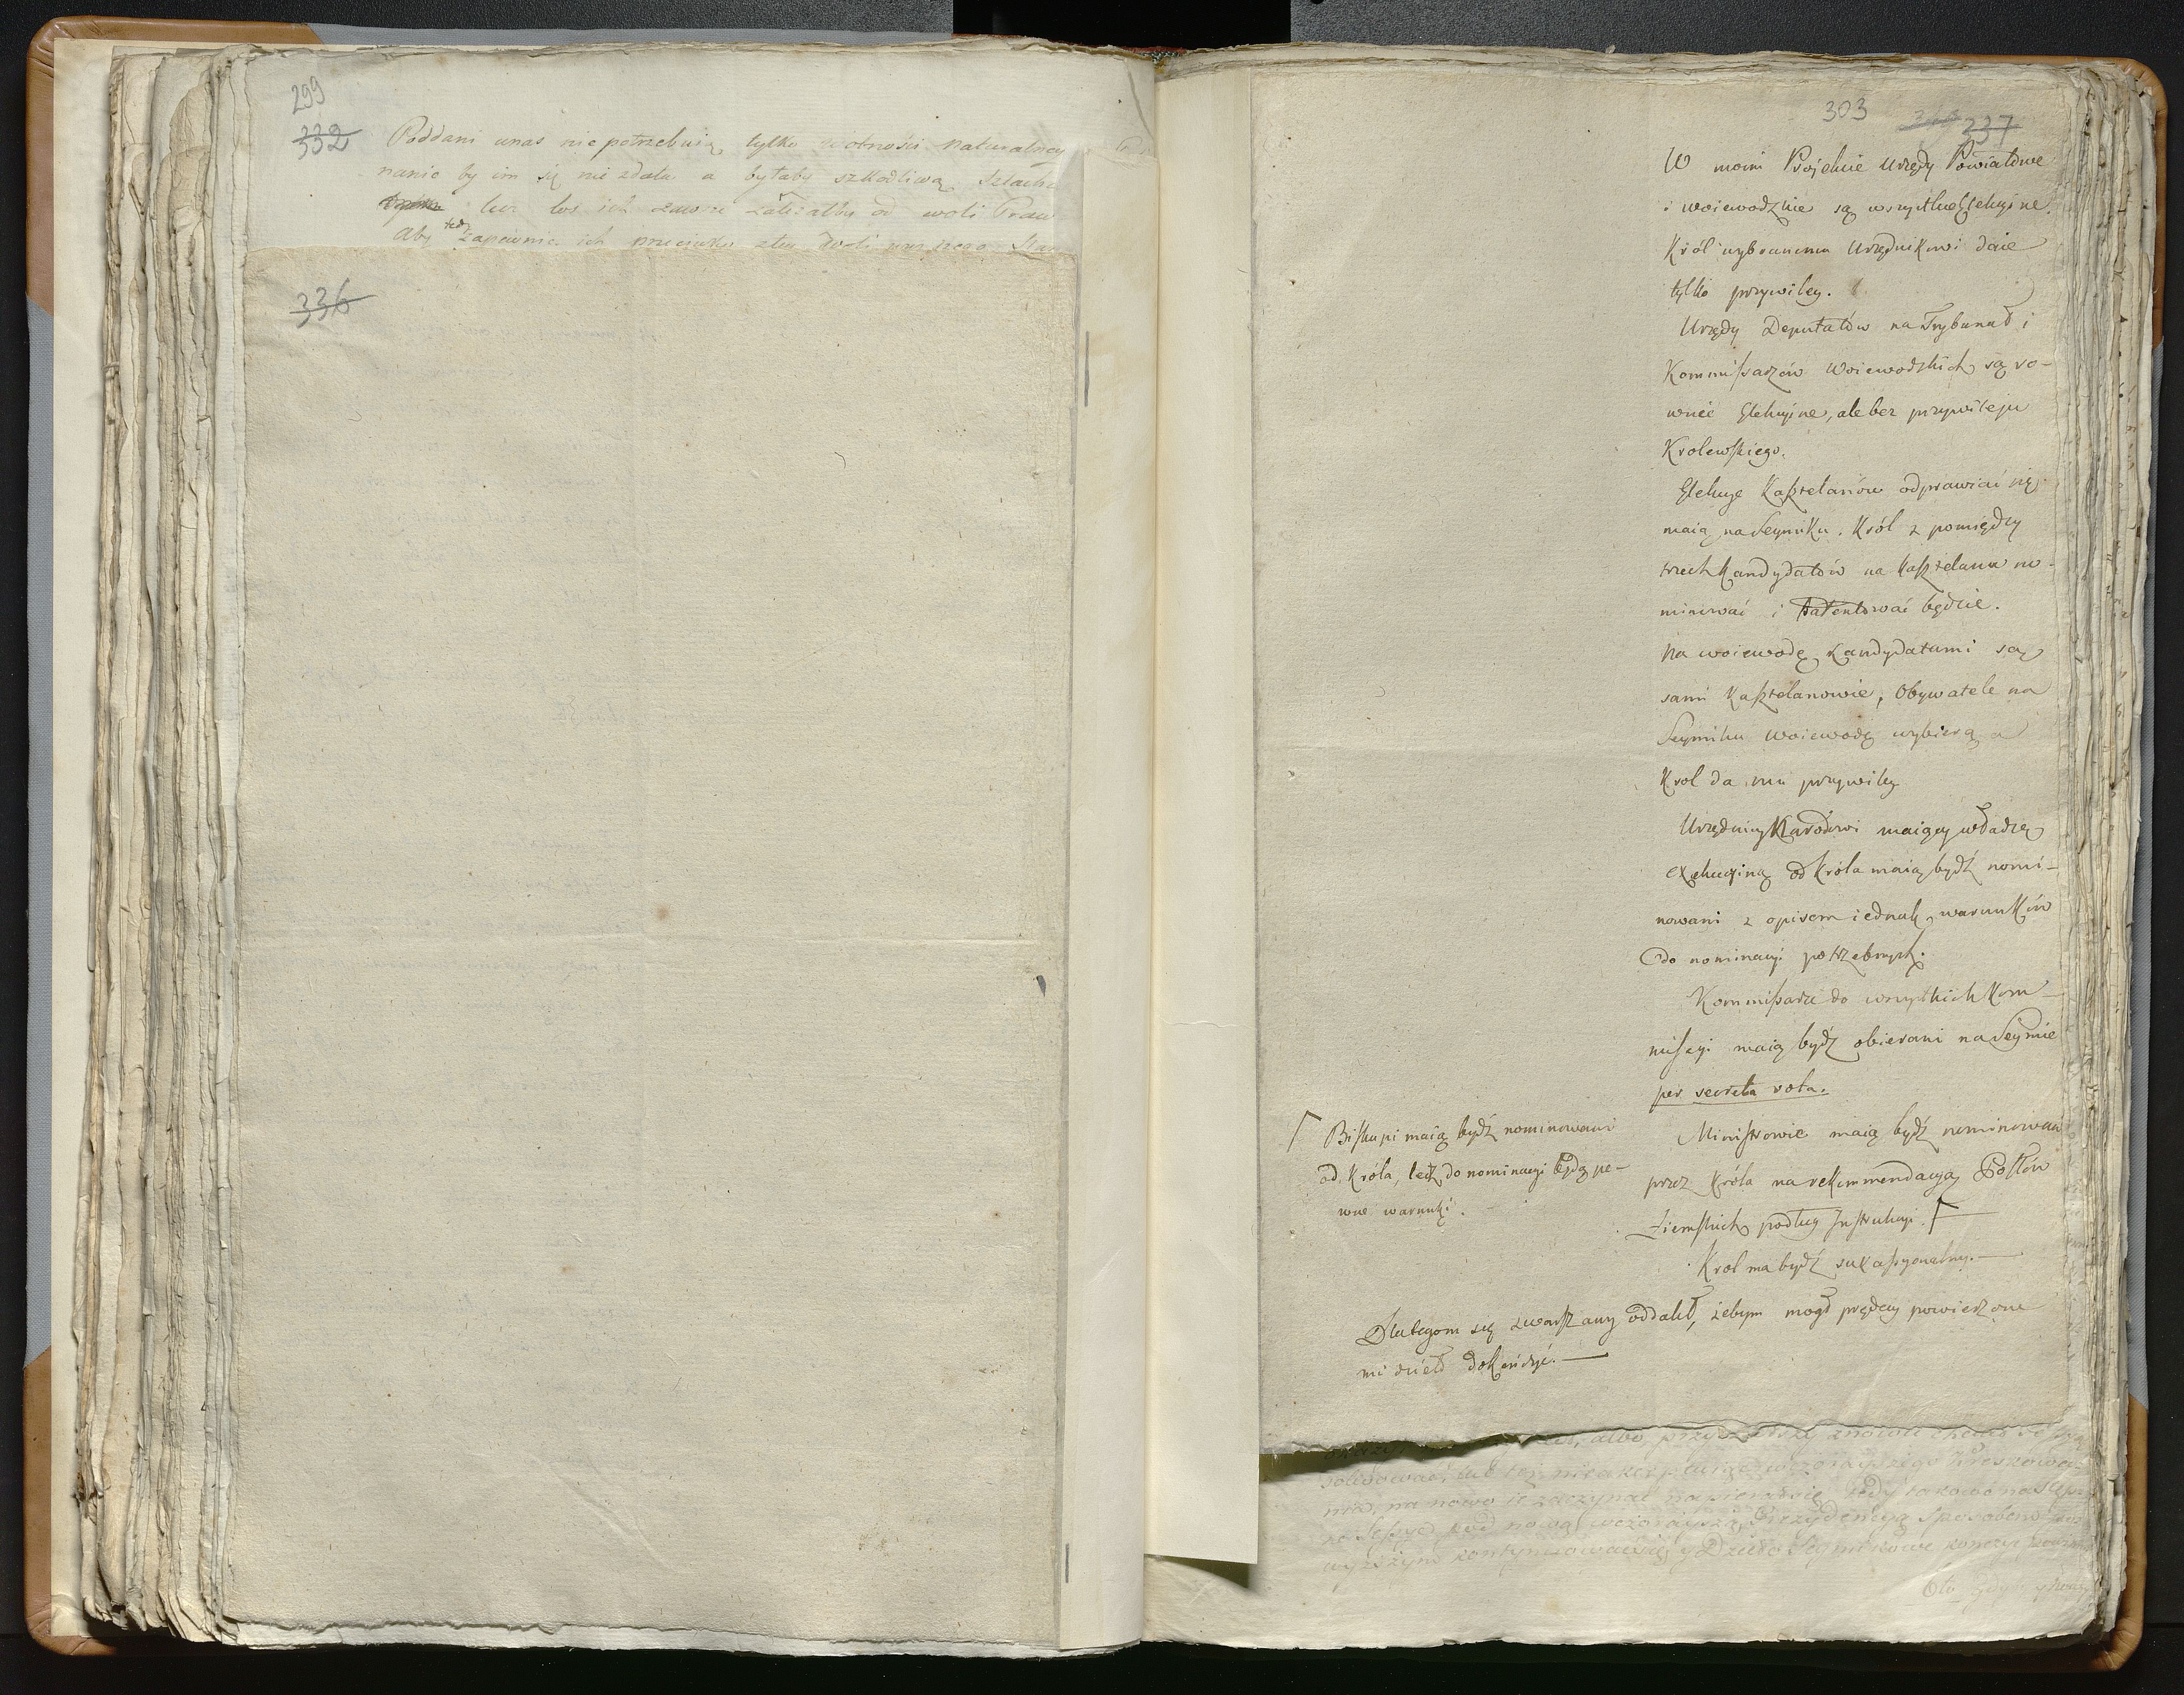 299
332
Poddani unas nie potrzebuią tylko wolności naturalney
nanic by im się nie zdała a byłaby szkodliwą Szlach
lecz los ich zawsze zależałby od woli Praw
Aby tedy zapewnić ich przeciwko złey woli
336
303
237
W moim Projekcie Urzędy Powiatowe
i woiewodzkie są wszystkie Elekcyine.
Król wybranemu Urzędnikowi daie
tylko przywiley.
Urzędy Deputatów na Trybunał i
Kommissarzów Woiewodzkich są ro-
wnież Elekcyine, ale bez przywileju
Krolewskiego.
Elekcye Kasztelanów odprawiać się
maią na Seymiku. Król z pomiędzy
trzech kandydatów na kasztelana no-
minować i patentować będzie.
Na woiewodę kandydatami są
sami Kasztelanowie, Obywatele na
Seymiku woiewodę wybierą a
Krol da mu przywiley
Urzędnicy Narodowi maiący władzę
exekucyiną od Króla maią bydź nomi-
nowani z opisem iednak warunków
do nominacyi potrzebnych.
Kommissarze do wszystkich Kom-
missyi maią bydź obierani na Seymie
per secreta vota.
Ministrowie maią bydź nominowani
przez Króla na rekommendacyą Posłów
Ziemskich podług Instrukcyi. Γ
Krol ma bydź sukcessyonalny. —
Γ Biskupi maią bydź nominowani
od Króla, lecz do nominacyi będą pe-
wne warunki.
Dlategom się z Warszawy oddalił, żebym mogł prędzey powierzone
mi dzieło dokończyć. —
albo przyszedłszy znowu
na nowo ie zaczynać
pod nową wczorayszą Prezydencyą Sposobem
wyższym kontynuować się y Dzieło Seymikowe kończyć